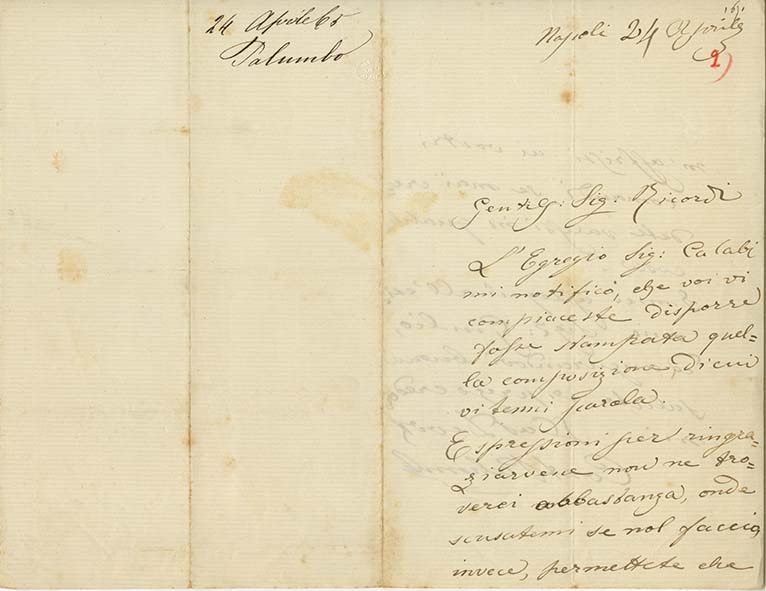 24 Aprile 65
Palumbo
Napoli 24 Aprile
Gent: Sig: Ricordi
L'Egregio Sig: Calabi
mi notificò, che voi vi
compiaceste disporre
fosse stampata quel=
la composizione, di cui
vi tenni parola.
Espressioni per ringra=
ziarvene non ne tro=
verei abbastanza, onde
scusatemi se nol faccio,
invece, permettete che